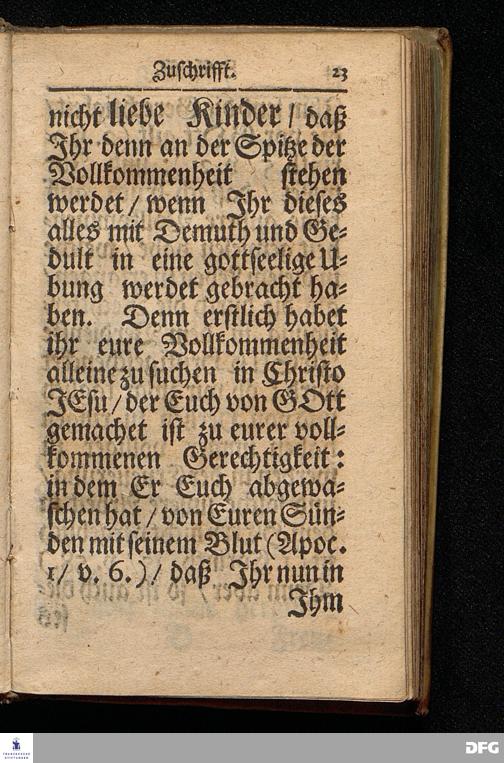 Zuschrifft. 23
nicht liebe Kinder / daß
Ihr denn an der Spitze der
Vollkommenheit stehen
werdet / wenn Ihr dieses
alles mit Demuth und Ge-
dult in eine gottseelige U-
bung werdet gebracht ha-
ben. Denn erstlich habet
ihr eure Vollkommenheit
alleine zu suchen in Christo
JEsu / der Euch von GOtt
gemachet ist zu eurer voll-
kommenen Gerechtigkeit:
in dem Er Euch abgewa-
schen hat / von Euren Sün-
den mit seinem Blut (Apoc.
1 / v. 6.) / daß Ihr nun in
Ihm
FRANCKESCHE
STIFTUNGEN
DFG